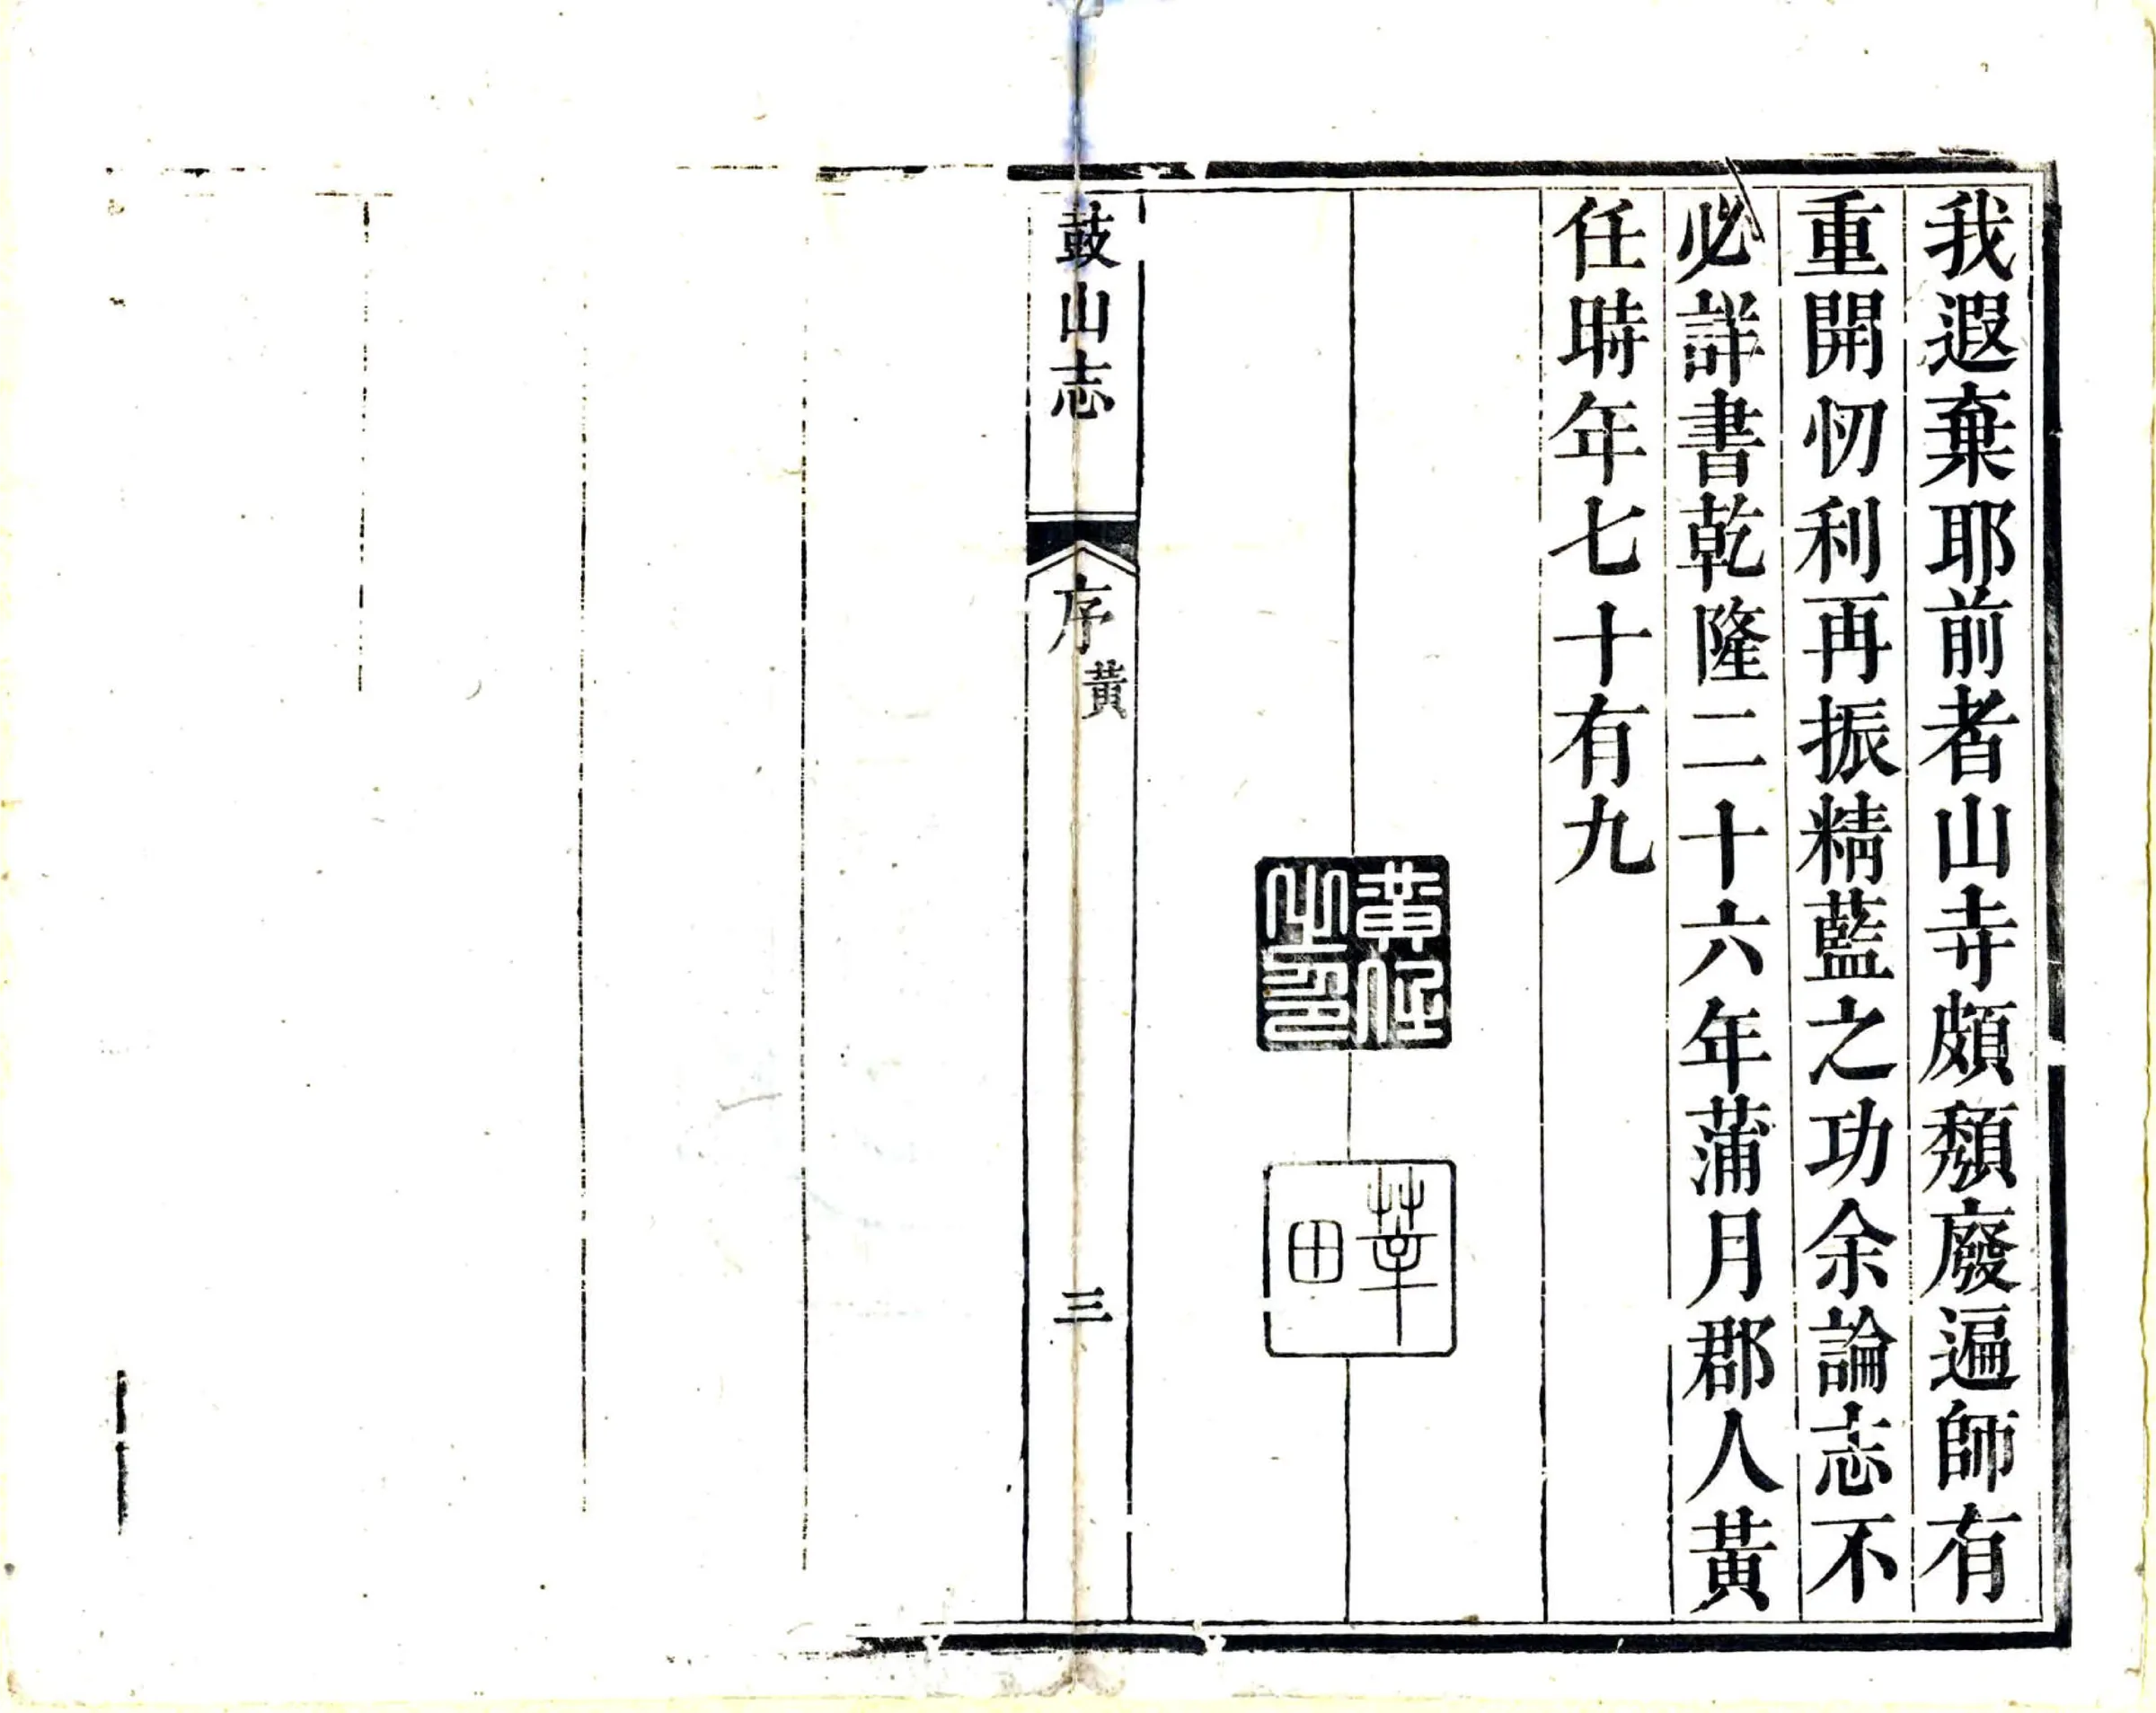 我遐棄耶前者山寺頗頽廢遍師有
重開忉利再振精藍之功余論志不
必詳書乾隆二十六年蒲月郡人黃
任時年七十有九
黃任之印
莘田
鼓山志
序
黃
三